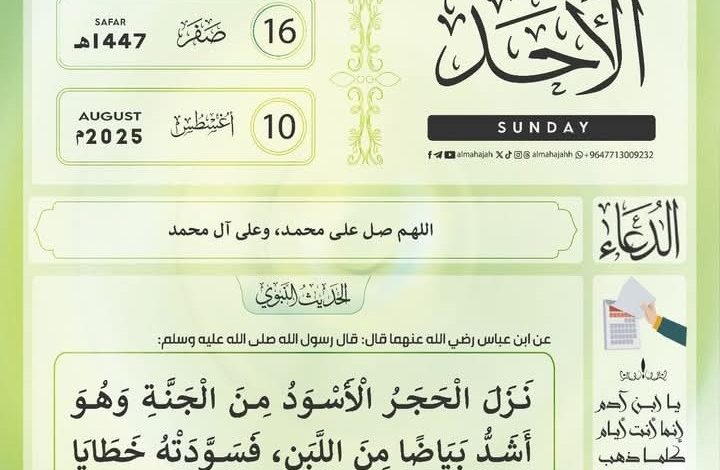 الأحد
SUNDAY
almahajah almahajahh +9647713009232
16 صفر SAFAR 1447هـ
10 أغسطس AUGUST 2025م
الدعاء
اللهم صل على محمد، وعلى آل محمد
الحديث النبوي
عن ابن عباس رضي الله عنهما قال: قال رسول الله صلى الله عليه وسلم:
نَزَلَ الْحَجَرُ الْأَسْوَدُ مِنَ الْجَنَّةِ وَهُوَ
أَشَدُّ بَيَاضًا مِنَ اللَّبَنِ، فَسَوَّدَتْهُ خَطَايَا
يا ابن آدم
إنما أنت أيام
كلما ذهب